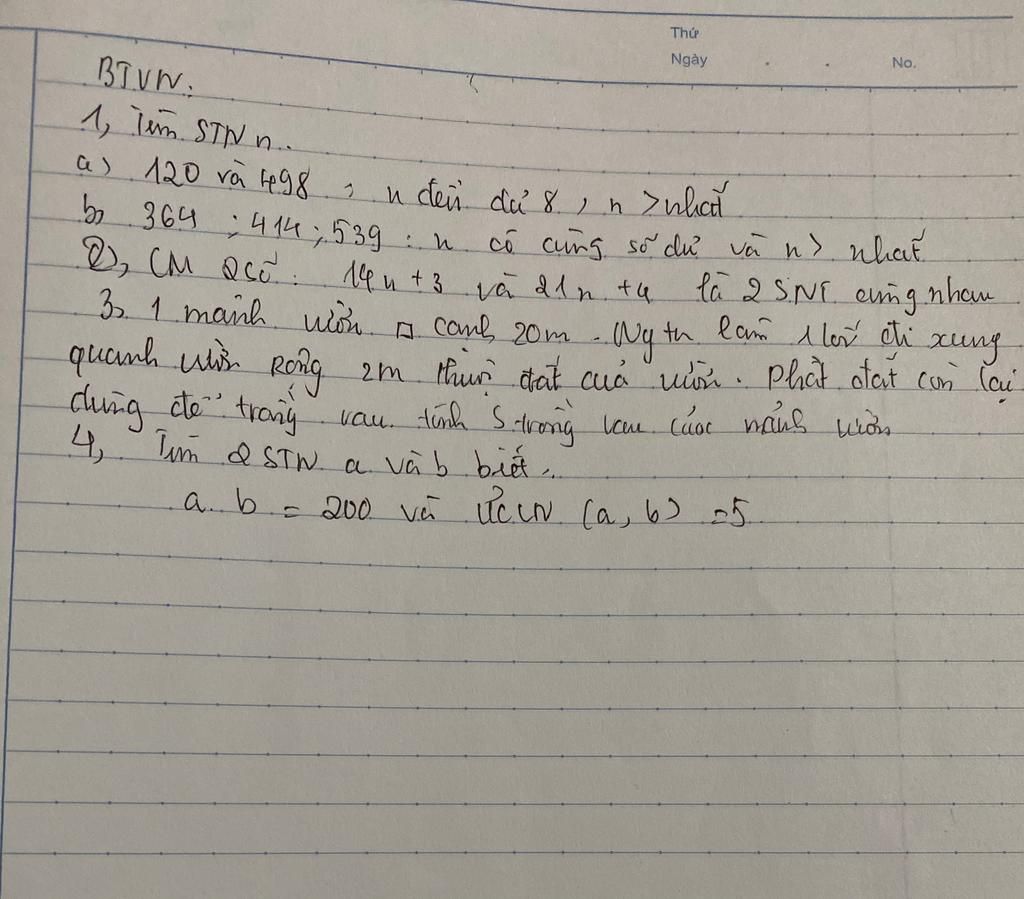 Thứ
Ngày . . No.
BTVN:
1, Tìm STN n.
a) 120 và 498 : n đều dư 8, n > nhất
b, 364 ; 414 ; 539 : n có cùng số dư và n > nhất
2), CM 2 số : 14n + 3 và 21n + 4 là 2 SNT cùng nhau
3, 1 mảnh vườn □ cạnh 20m. Ng ta làm 1 lối đi xung
quanh vườn rộng 2m thuộc đất của vườn. Phần đất còn lại
dùng để trồng rau. tính S trồng rau của mảnh vườn
4, Tìm 2 STN a và b biết..
a. b = 200 và ƯCLN (a, b) = 5